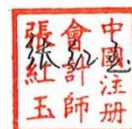 中國注册
會計師
張紅玉